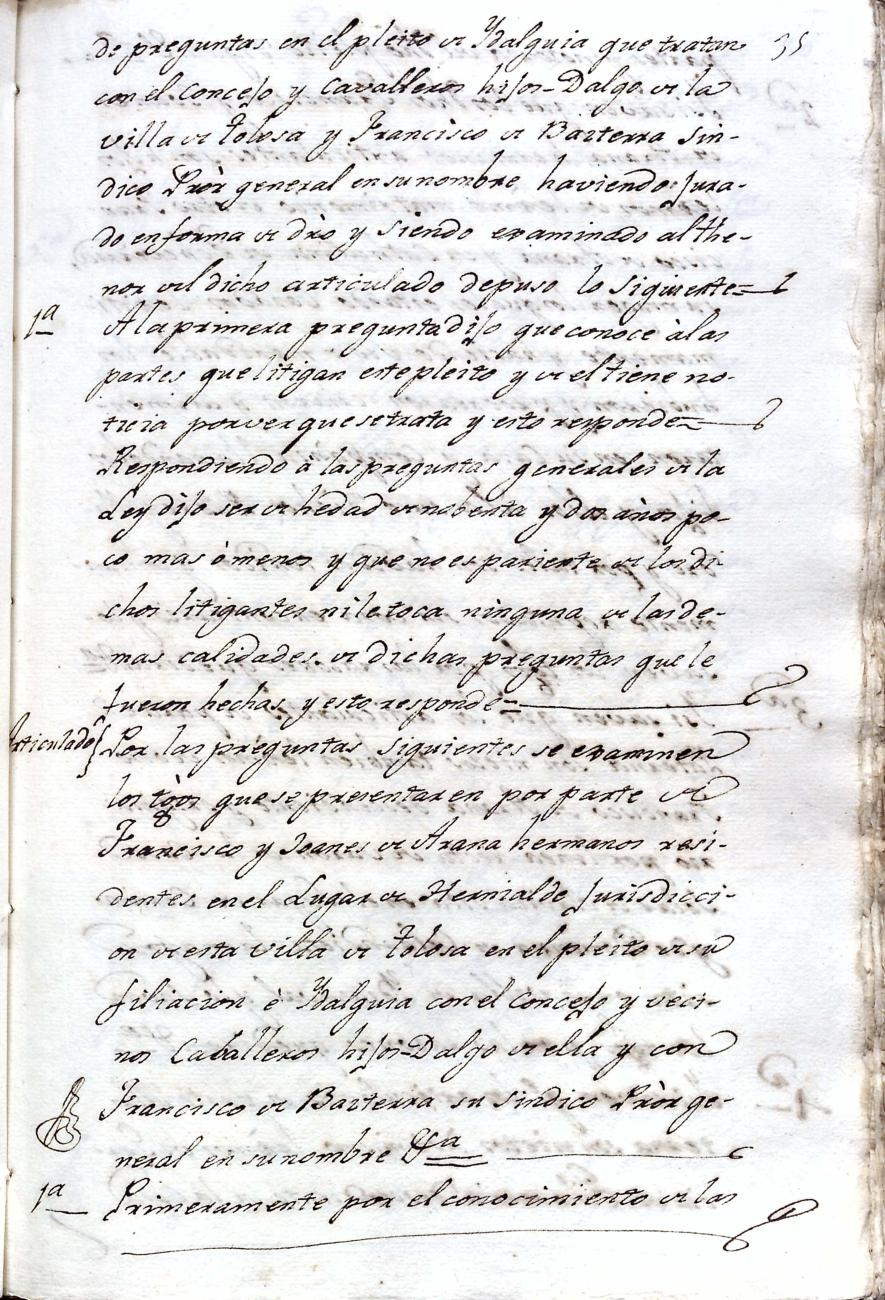 de preguntas en el pleito de Ydalguia que tratan 35
con el Concejo y Cavalleros hijos-Dalgo de la
villa de Tolosa y Francisco de Baiterra Sin-
dico Pròr general en su nombre haviendo Jura-
do en forma de dr̀o y siendo examinado al the-
nor del dicho articulado depuso lo siguiente=
1ª A la primera pregunta dijo que conoce à las
partes que litigan este pleito y de el tiene no-
ticia por ver que se trata y esto responde=
Respondiendo à las preguntas generales de la
Ley dijo ser de hedad de nobenta y dos años po-
co mas ò menos y que no es pariente de los di-
chos litigantes ni le toca ninguna de las de-
mas calidades de dichas preguntas que le
fueron hechas y esto responde=
Articulado{ Por las preguntas siguientes se examinen
los tg̀os que se presentaren por parte de
Francisco y Joanes de Arana hermanos resi-
dentes en el Lugar de Hernialde Jurisdicci-
on de esta villa de Tolosa en el pleito de su
filiacion è Ydalguia con el Concejo y veci-
nos Caballeros hijos-Dalgo de ella y con
Francisco de Baiterra su sindico Pròr ge-
neral en su nombre &ª
1ª Primeramente por el conocimiento de las